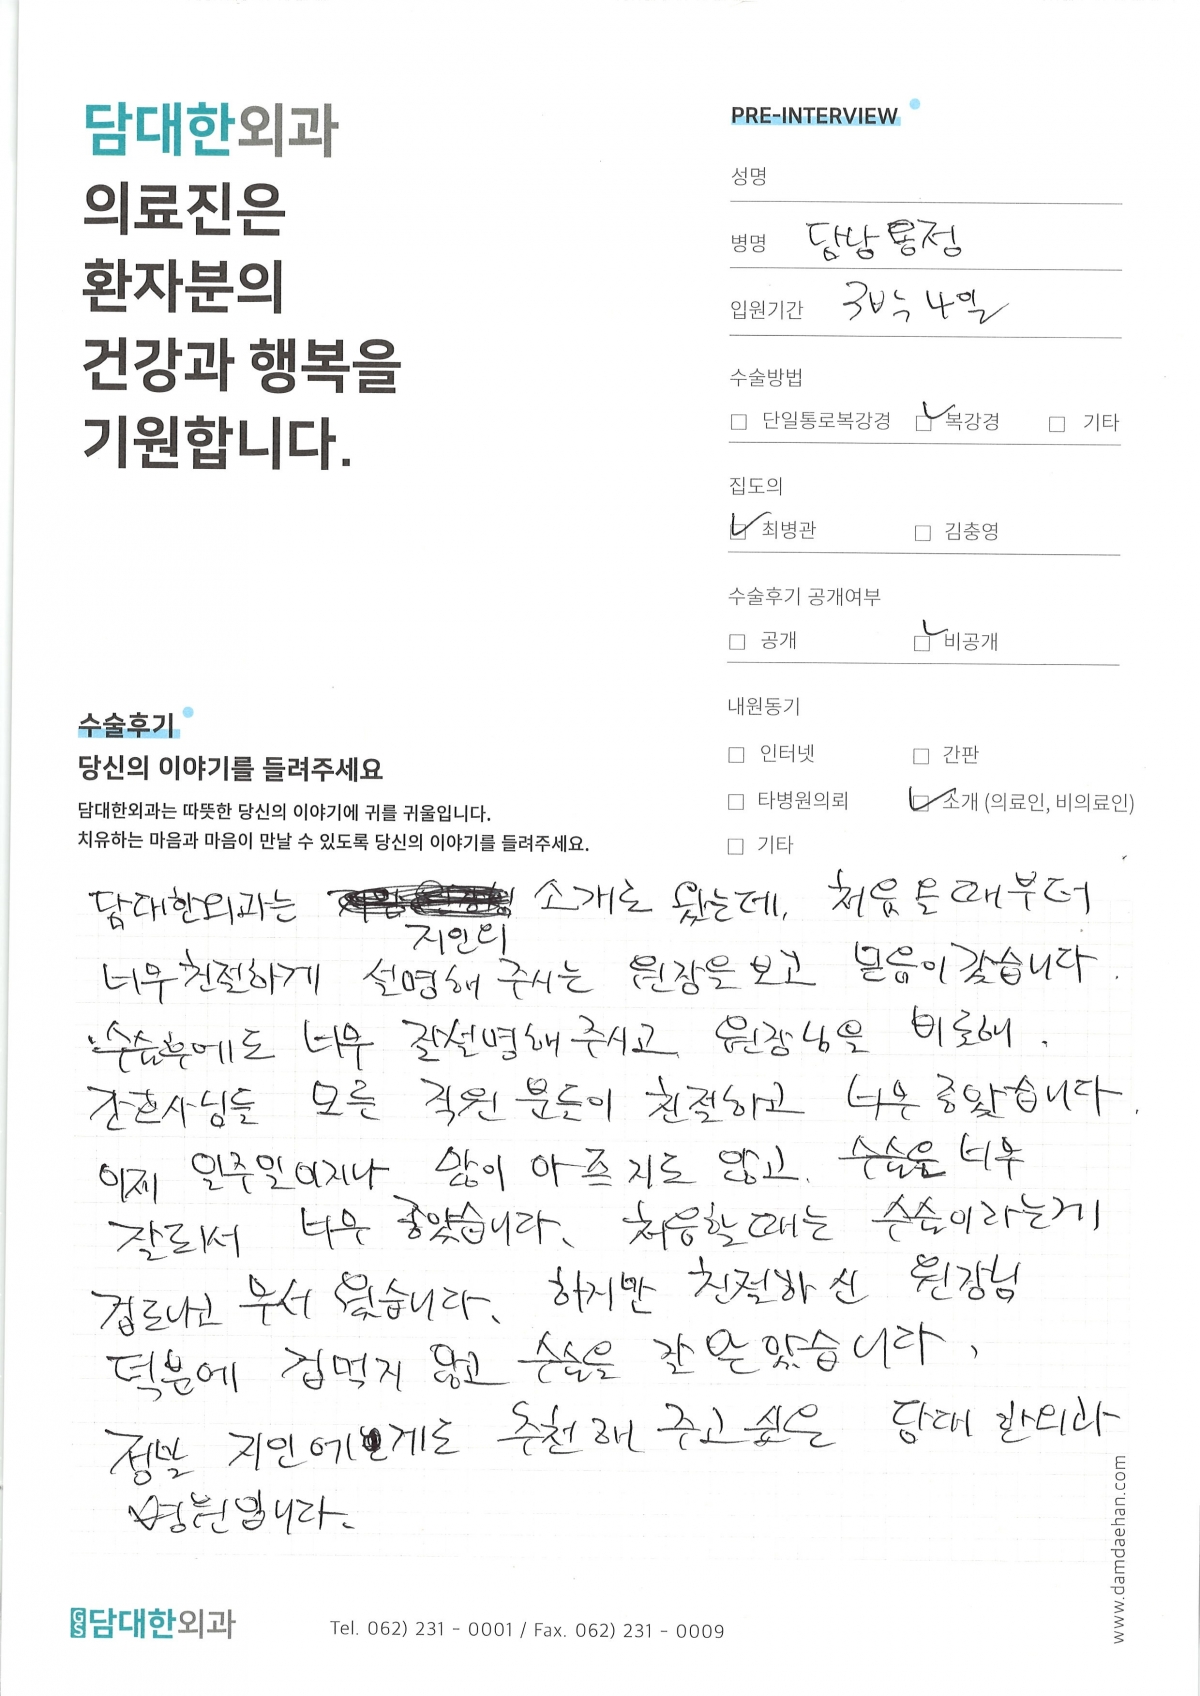 담대한외과
의료진은
환자분의
건강과 행복을
기원합니다.
PRE-INTERVIEW
성명
병명 담낭용정
입원기간 3박 4일
수술방법
□ 단일통로복강경 ☑ 복강경 □ 기타
집도의
☑ 최병관 □ 김충영
수술후기 공개여부
□ 공개 ☑ 비공개
내원동기
□ 인터넷 □ 간판
□ 타병원의뢰 ☑ 소개 (의료인, 비의료인)
□ 기타
수술후기
당신의 이야기를 들려주세요
담대한외과는 따뜻한 당신의 이야기에 귀를 귀울입니다.
치유하는 마음과 마음이 만날 수 있도록 당신의 이야기를 들려주세요.
담대한외과는 지인의 소개로 왔는데, 처음 올때부터
너무친절하게 설명해 주시는 원장을 보고 믿음이 갔습니다.
수술후에도 너무 잘설명해 주시고, 원장님을 비로해,
간호사님들 모른 직원 분들이 친절하고 너무 좋았습니다.
이제 일주일이지나 많이 아프지도 않고, 수술은 너무
잘되서 너무 좋았습니다. 처음할때는 수술이라는게
겁도나고 무서웠습니다. 하지만 친절하신 원장님
덕분에 겁먹지 않고 수술을 잘 받았습니다.
정말 지인에게도 추천해 주고싶은 담대한외과
병원입니다.
GS담대한외과
Tel. 062) 231 - 0001 / Fax. 062) 231 - 0009
www.damdaehan.com